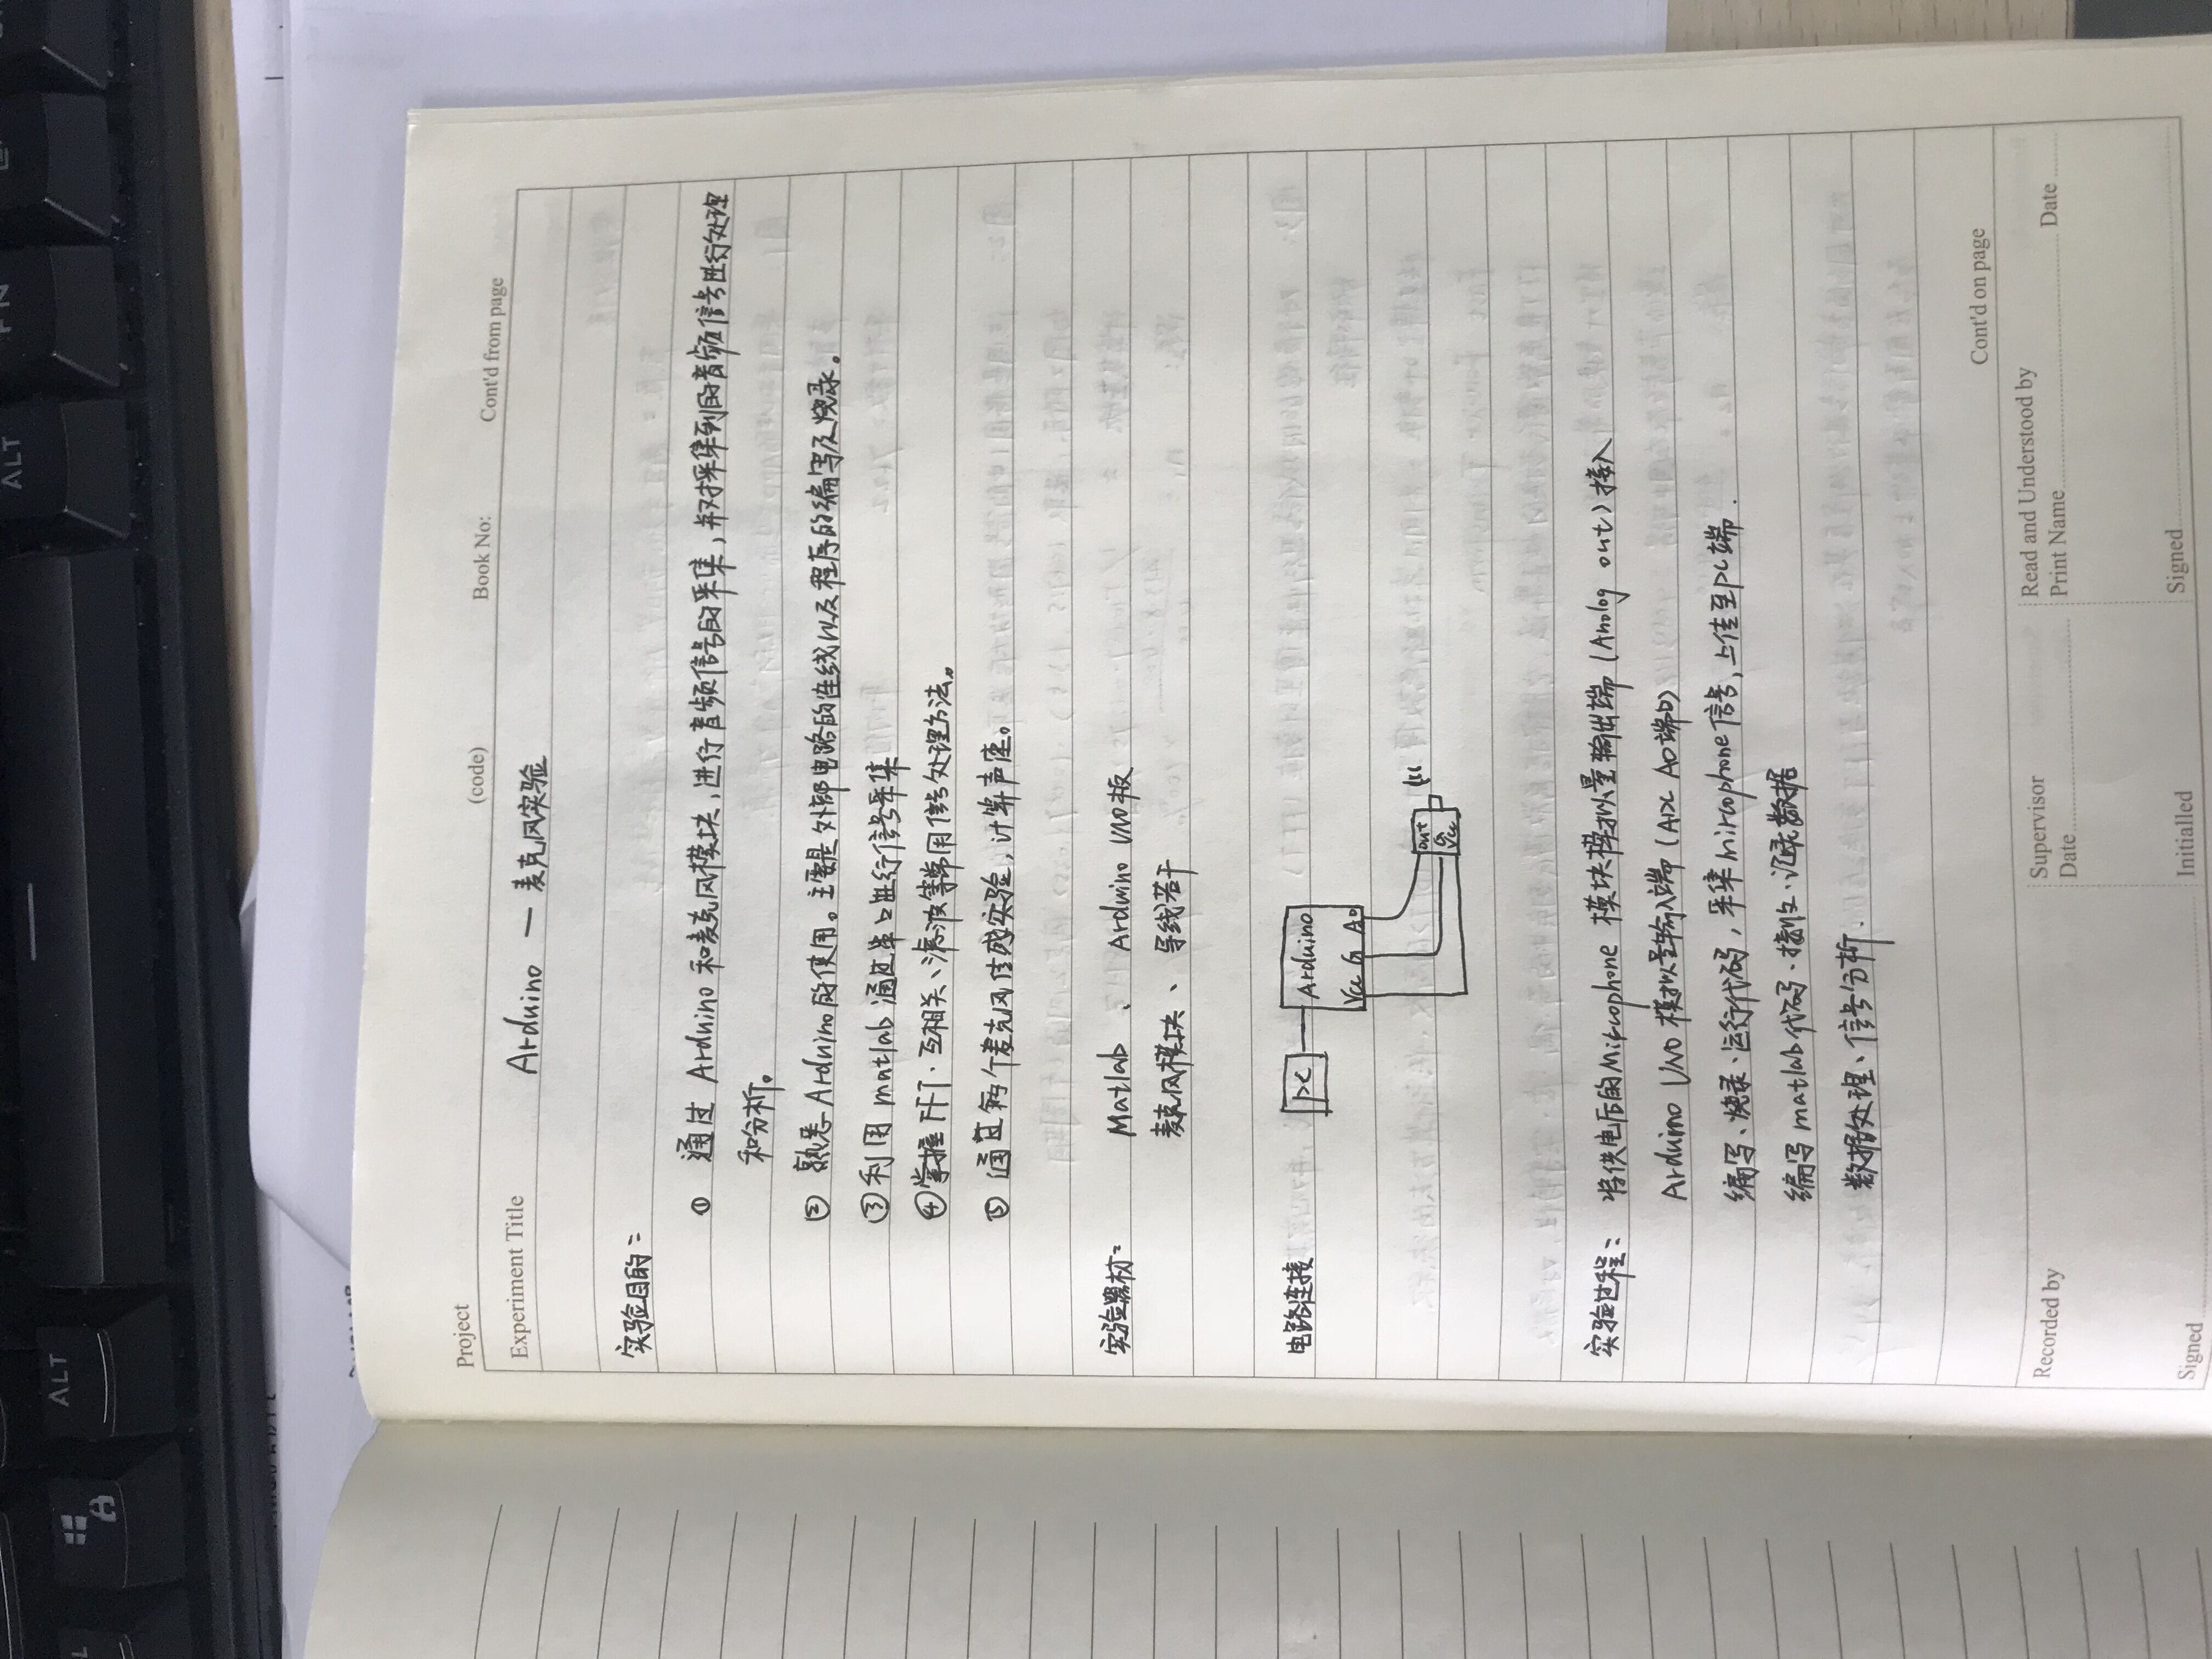 Project (code) Book No: Cont'd from page
Experiment Title Arduino — 麦克风实验
实验目的:
① 通过 Arduino 和麦克风模块,进行音频信号的采集,并对采集到的音频信号进行处理
和分析。
② 熟悉 Arduino 的使用。主要是外部电路的连线以及程序的编写及烧录。
③ 利用 matlab 通过串口进行信号采集
④ 掌握 FFT、互相关、滤波等常用信号处理方法。
⑤ 通过两个麦克风传感实验,计算声速。
实验器材: Matlab、Arduino UNO板
麦克风模块、导线若干
电路连接
PC Arduino
Vcc G A0
out
G
Vcc
实验过程: 将供电后的Microphone 模块模拟量输出端 (Anolog out) 接入
Arduino UNO 模拟量输入端 (ADC A0端口)
编写、烧录、运行代码,采集mircophone信号,上传至PC端.
编写matlab代码、接收、记录数据
数据处理、信号分析.
Cont'd on page
Recorded by Supervisor Read and Understood by
Date Print Name Date
Signed Initialled Signed
ALT
FN
ALT